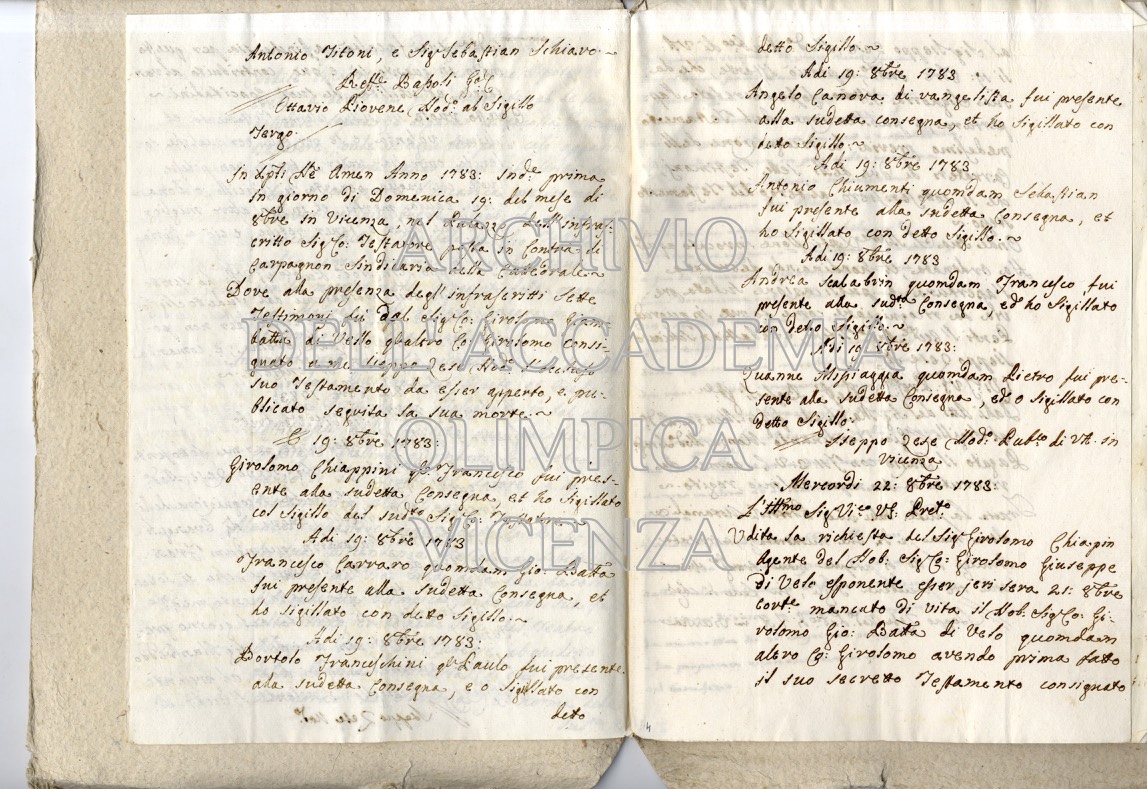 Antonio Titoni, e Sigr Sebastian Schiavo ~
Reffe. Bapoli
Ottavio Piovene Nodo. al Sigillo
Tergo.
In Xpti Nte Amen Anno 1783: Inde. prima
in giorno di Domenica 19: del mese di
8bre in Vicenza, nel Palazzo dell' infras-
critto Sigr Co: Testatore posta in Contra di
Carpagnon Sindicaria della Cattedrale ~
Dove alla presenza degl' infrascritti Sette
Testimonj fù dal Sigr Co: Girolomo Giam
batta di Vello qualtro Co: Girolomo consi-
gnato a me Iseppo Zese Nodo.
suo Testamento da esser apperto, e pu-
blicato seguita la sua morte. ~
19: 8bre 1783:
Girolomo Chiappini qm Francesco fui pres-
ente alla sudetta Consegna, et ho Sigillato
col Sigillo del sudto Sigr Co: Testatore
Adi 19: 8bre 1783
Francesco Carraro quondam Gio: Batta
fui presente alla sudetta Consegna, et
ho sigillato con detto Sigillo. ~
Adi 19: 8bre 1783:
Bortolo Franceschini qm Paulo fui presente
alla sudetta Consegna, e o Sigillato con
deto
detto Sigillo. ~
Adi 19: 8bre 1783
Angelo Canova di vangelista fui presente
alla sudetta consegna, et ho Sigillato con
deto Sigillo. ~
Adi 19: 8bre 1783
Antonio Chiumenti quomdam Sebastian
fui presente alla sudetta Consegna, et
ho Sigillato con detto Sigillo. ~
Adi 19: 8bre 1783
Andrea Scalabrin quomdam Francesco fui
presente alla sudta Consegna, ed ho Sigillato
con detto Sigillo. ~
Adi 19 8bre 1783:
Zuanne Mspiaggia quomdam Pietro fui pre-
sente alla sudetta Consegna, ed o Sigillato con
detto Sigillo.
Iseppo Zese Nodo. Pubco di Va. in
Vicenza
Mercordi 22: 8bre 1783:
L'Illmo Sigr Vico Vo. Preto
Udita la richiesta del Sigr Girolomo Chiapin
Agente del Nob: Sigr Co: Girolomo Giuseppe
di Velo esponente esser jeri sera 21: 8bre
corte. mancato di vita il Nob: Sigr Co: Gi-
rolomo Gio: Batta di Velo quomdam
altro Co: Girolomo avendo prima fatto
il suo secretto Testamento consignato
4
ARCHIVIO
DELL'ACCADEMIA
OLIMPICA
VICENZA